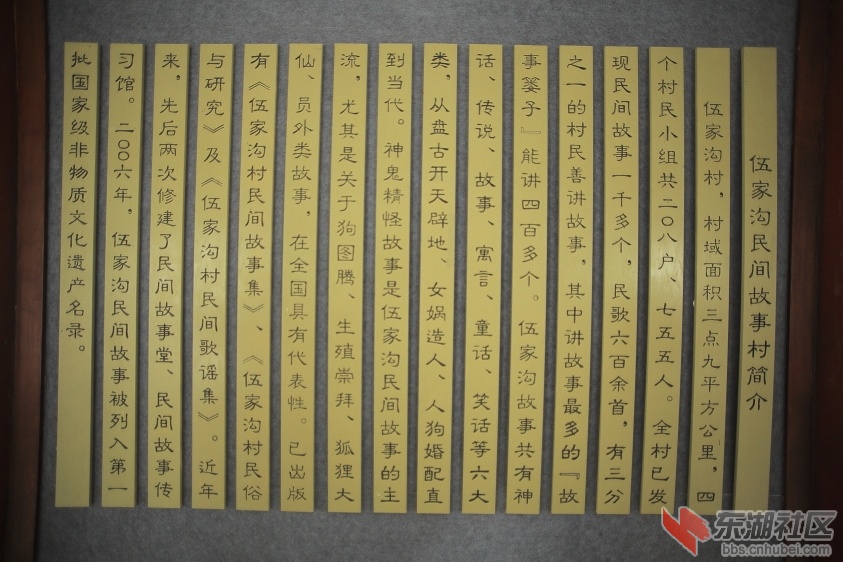 伍家沟民间故事村简介
伍家沟村，村域面积三点九平方公里，四
个村民小组共二〇八户、七五五人。全村已发
现民间故事一千多个，民歌六百余首，有三分
之一的村民善讲故事，其中讲故事最多的『故
事篓子』能讲四百多个。伍家沟故事共有神
话、传说、故事、寓言、童话、笑话等六大
类，从盘古开天辟地、女娲造人、人狗婚配直
到当代。神鬼精怪故事是伍家沟民间故事的主
流，尤其是关于狗图腾、生殖崇拜、狐狸大
仙、员外类故事，在全国具有代表性。已出版
有《伍家沟村民间故事集》、《伍家沟村民俗
与研究》及《伍家沟村民间歌谣集》。近年
来，先后两次修建了民间故事堂、民间故事传
习馆。二〇〇六年，伍家沟民间故事被列入第一
批国家级非物质文化遗产名录。
东湖社区
bbs.cnhubei.com